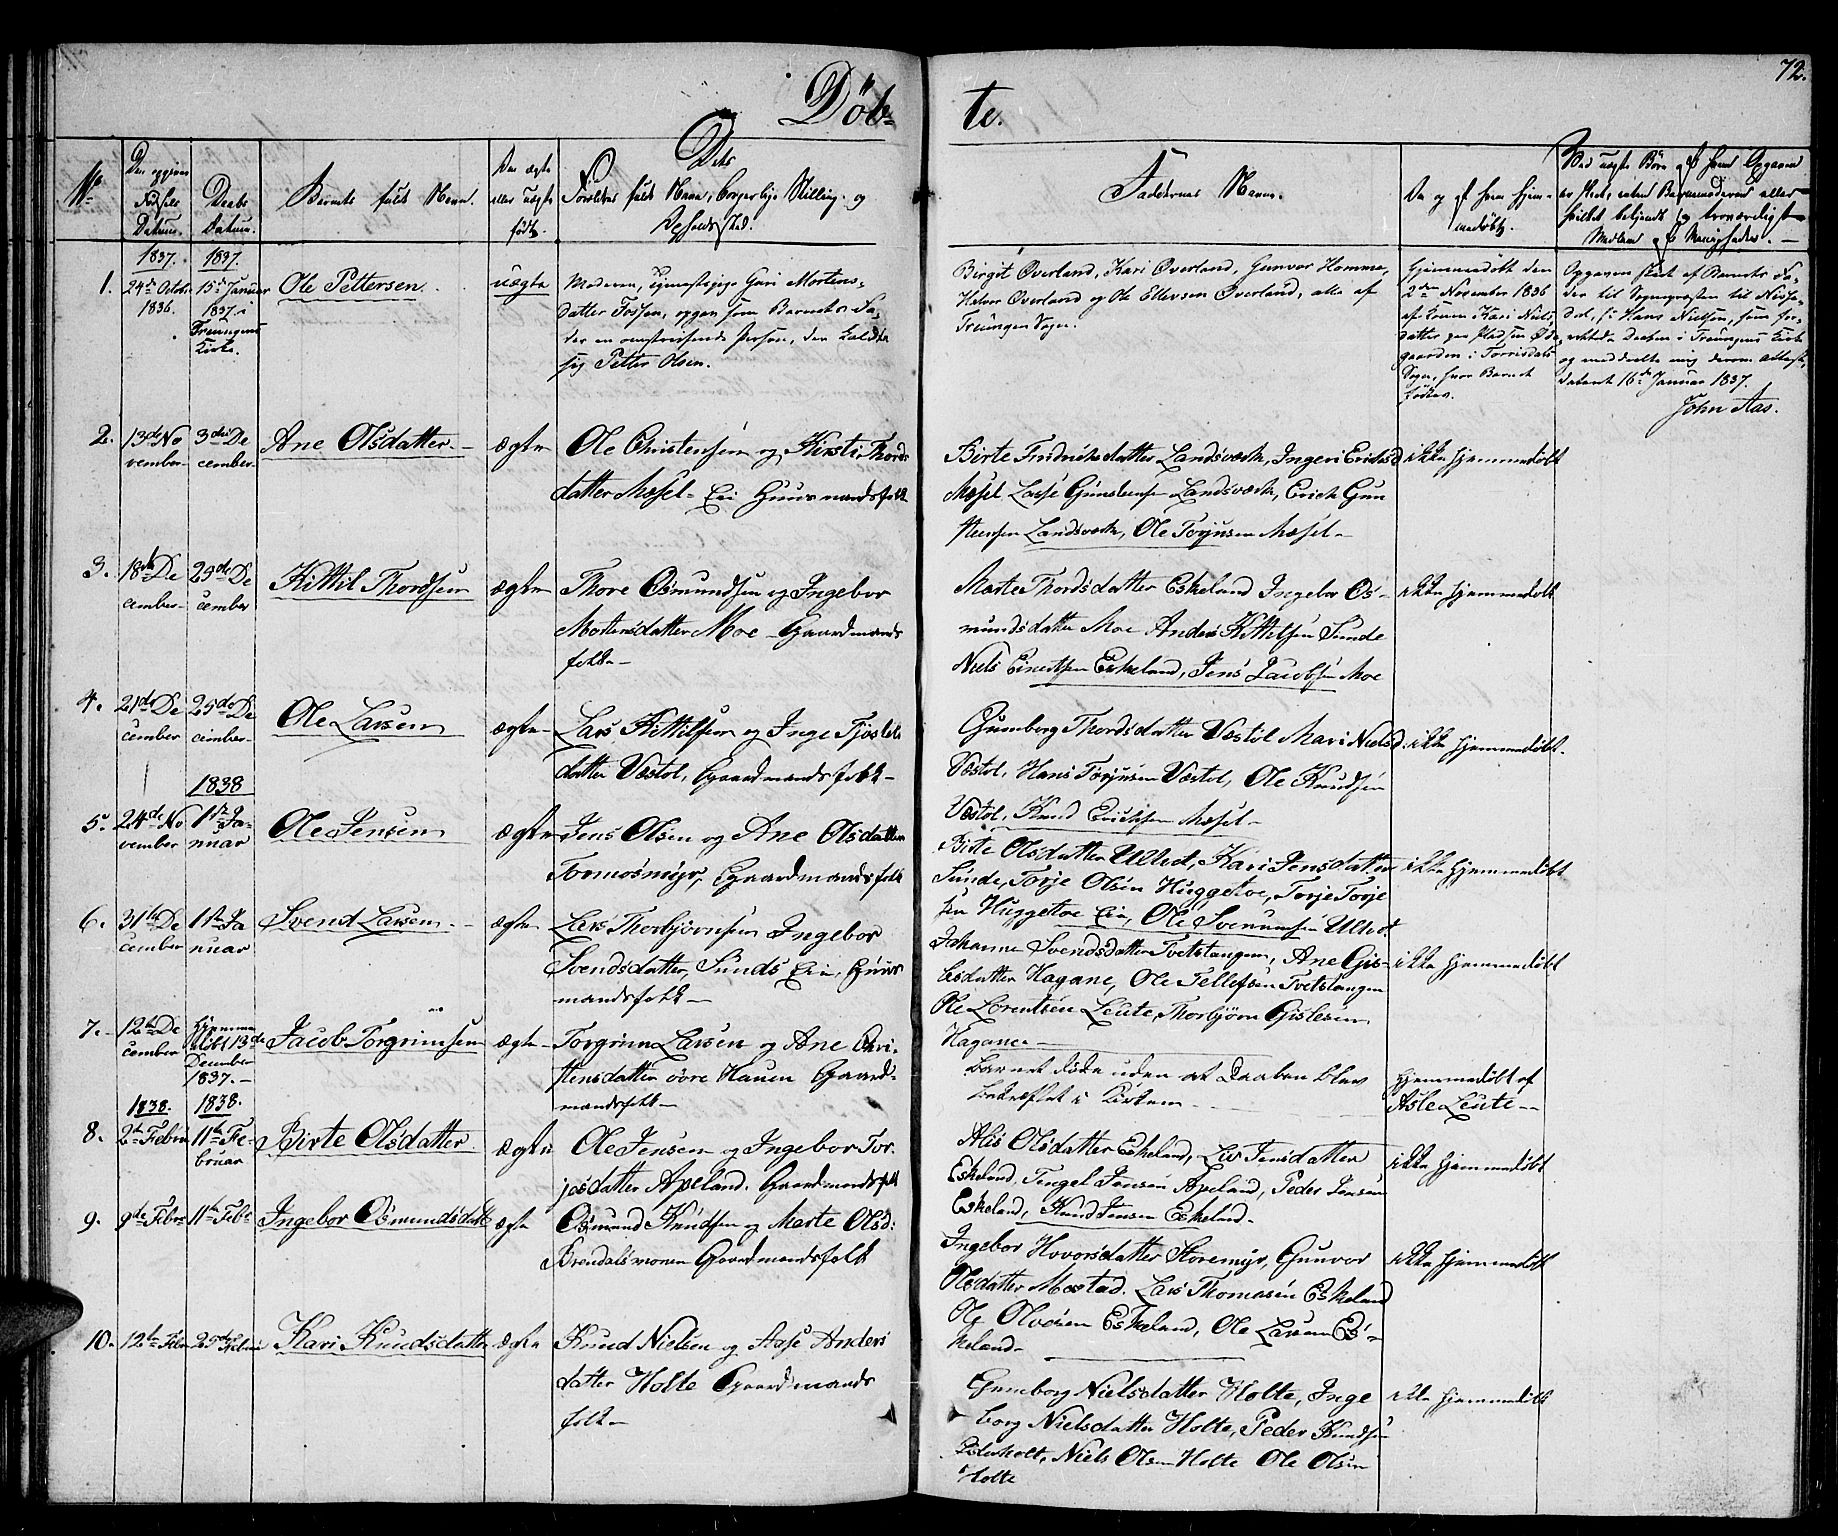 72.
Døb-
te.
No
Den opgivne Fødsels Datum.
Daabs Datum.
Barnets fulde Navn.
Om ægte eller uægte født.
Dets
Forældres fulde Navn, borgerlige Stilling og
Opholdssted.
Faddernes Navne.
Om og af hvem hjem-
medøbt.
Ved uægte Børn af hvem Opgaven
er skeet, enten Barnemoderen eller
hvilket bekjendt og troværdigt
Medlem af Menigheden.
1837.
1837.
1.
24de Octobr
1836.
15de Januar
1837 i
Treungens
Kirke.
Ole Pettersen
uægte
Moderen, ugivt Pige Guri Mortens-
datter Fossen, opgav som Barnets Fa-
der en omstreifende Person, der kaldte
sig Petter Olsen.
Birgit Øverland, Kari Øverland, Gunvor Homme,
Halvor Øverland og Ole Ellevsen Øverland, alle af
Treungen Sogn.
Hjemmedøbt den
2den November 1836
af Konen Kari Niels-
datter paa Pladsen Øde-
gaarden i Torrisdals
Sogn, hvor Barnet
fødtes.
Opgaven skeet af Barnets Fa-
der til Sognepræsten til Nisse-
dal, Hr Hans Nielsen, som for-
rettede Daaben i Treungens Kirke
og meddeelte mig derom Attest,
dateret 16de Januar 1837.
John Aas.
2.
13de No
vember
3die De
cember
Ane Olsdatter
ægte
Ole Christensen og Kirsti Thords
datter Mæsel Eie Huusmandsfolk
Birte Fredrichsdatter Landsværk, Ingeri Ericksd
Mæsel Lasse Gundersen Landsværk, Erich Gun
steensen Landsværk, Ole Torjusen Mæsel
ikke hjemmedøbt
3.
18de De
cember
25de De
cember
Kittil Thordsen
ægte
Thore Osmundsen og Ingebor
Mortensdatter Moe Gaardmands
folk
Marte Thordsdatter Eskeland Ingebor Os-
mundsdatter Moe Anders Kittelsen Sunde
Niels Einertsen Eskeland, Jens Jacobsen Moe
ikke hjemmedøbt
4.
21de De
cember
25de De
cember
Ole Larsen
ægte
Lars Kittilsen og Inge Tjøstels
datter Væstøl, Gaardmandsfolk
Gunborg Thordsdatter Væstøl Mari Nielsd.
Væstøl, Hans Torjusen Væstøl, Ole Knudsen
Væstøl, Knud Erichsen Mæsel
ikke hjemmedøbt.
1838
5.
24de No
vember
1ste Ja-
nuar
Ole Jensen
ægte
Jens Olsen og Ane Olsdatter
Tormosmyr, Gaardmandsfolk
Birte Olsdatter Ulltvet, Kari Jensdatter
Sunde, Torje Olsen Huggetoe, Torje Torje
sen Huggetoe Eie, Ole Svenumsen Ulltvet
ikke hjemmedøbt
6.
31te De
cember
1ste Ja
nuar
Svend Larsen
ægte
Lars Thorbjørnsen Ingebor
Svendsdatter, Sunds Eie, Huus
mandsfolk
Johanne Svendsdatter Tvetstangen, Ane Gis-
lesdatter Hagane, Ole Tellefsen Tvetstangen
Ole Lorentsen Leute, Thorbjørn Gislesen
Hagane
ikke hjemmedøbt
7.
12te De
cember
hjemme
døbt 13de
December
1837.
Jacob Torgrimsen
ægte
Torgrim Larsen og Ane Chri-
stensdatter øvre Hauen Gaard-
mandsfolk
Barnet døde uden at Daaben blev
bekræftet i Kirken
hjemmedøbt af
Asle Leute
1838.
1838.
8.
2de Februar
11te Fe-
bruar
Birte Olsdatter
ægte
Ole Jensen og Ingebor Tor-
jesdatter Apeland. Gaardmandsfolk
Alis Olsdatter Eskeland, Liv Jensdatter
Eskeland, Tengel Jensen Apeland, Peder Jensen
Eskeland, Knud Jensen Eskeland
ikke hjemmedøbt
9.
9de Febr
11te Febr
Ingebor Osmundsdatt
ægte
Osmund Knudsen og Marte Olsd:
Brendalsmonen Gaardmandsfolk
Ingebor Hovorsdatter Storemyr, Gunvor
Olsdatter Mostad. Lars Thomasen Eskeland
Ole Olvesen Eskeland, Ole Larsen Es-
keland
ikke hjemmedøbt
10.
12te Febr
25de Febr
Kari Knudsdatter
ægte
Knud Nielsen og Aase Anders
datter Holte Gaardmands
folk
Gunborg Nielsdatter Holte, Inge
borg Nielsdatter Holte, Peder Knudsen
Østerholt, Niels Olsen Holte Ole Olsen
Holte
ikke hjemmedøbt